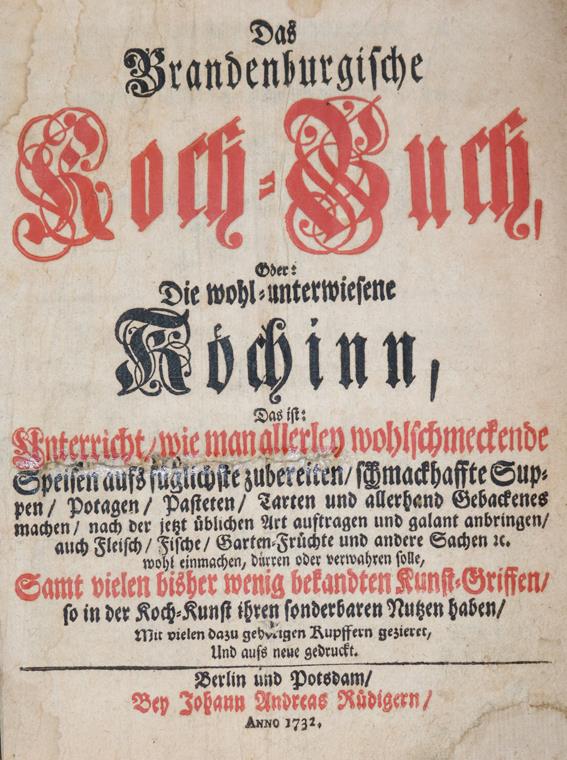 Das
Brandenburgische
Koch-Buch,
Oder:
Die wohl-unterwiesene
Köchinn,
Das ist:
Unterricht / wie man allerley wohlschmeckende
Speisen aufs füglichste zubereiten / schmackhaffte Sup-
pen / Potagen / Pasteten / Tarten und allerhand Gebackenes
machen / nach der jetzt üblichen Art auftragen und galant anbringen /
auch Fleisch / Fische / Garten-Früchte und andere Sachen ꝛc.
wohl einmachen, dürren oder verwahren solle,
Samt vielen bisher wenig bekandten Kunst-Griffen /
so in der Koch-Kunst ihren sonderbaren Nutzen haben /
Mit vielen dazu gehörigen Kupffern gezieret,
Und aufs neue gedruckt.
Berlin und Potsdam /
Bey Johann Andreas Rüdigern /
ANNO 1732.